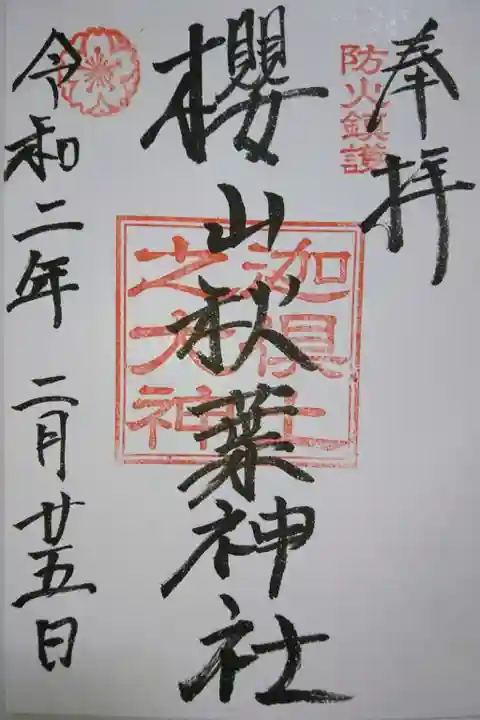 奉拝
防火鎮護
櫻山秋葉神社
迦倶土
之大神
令和二年 二月廿五日